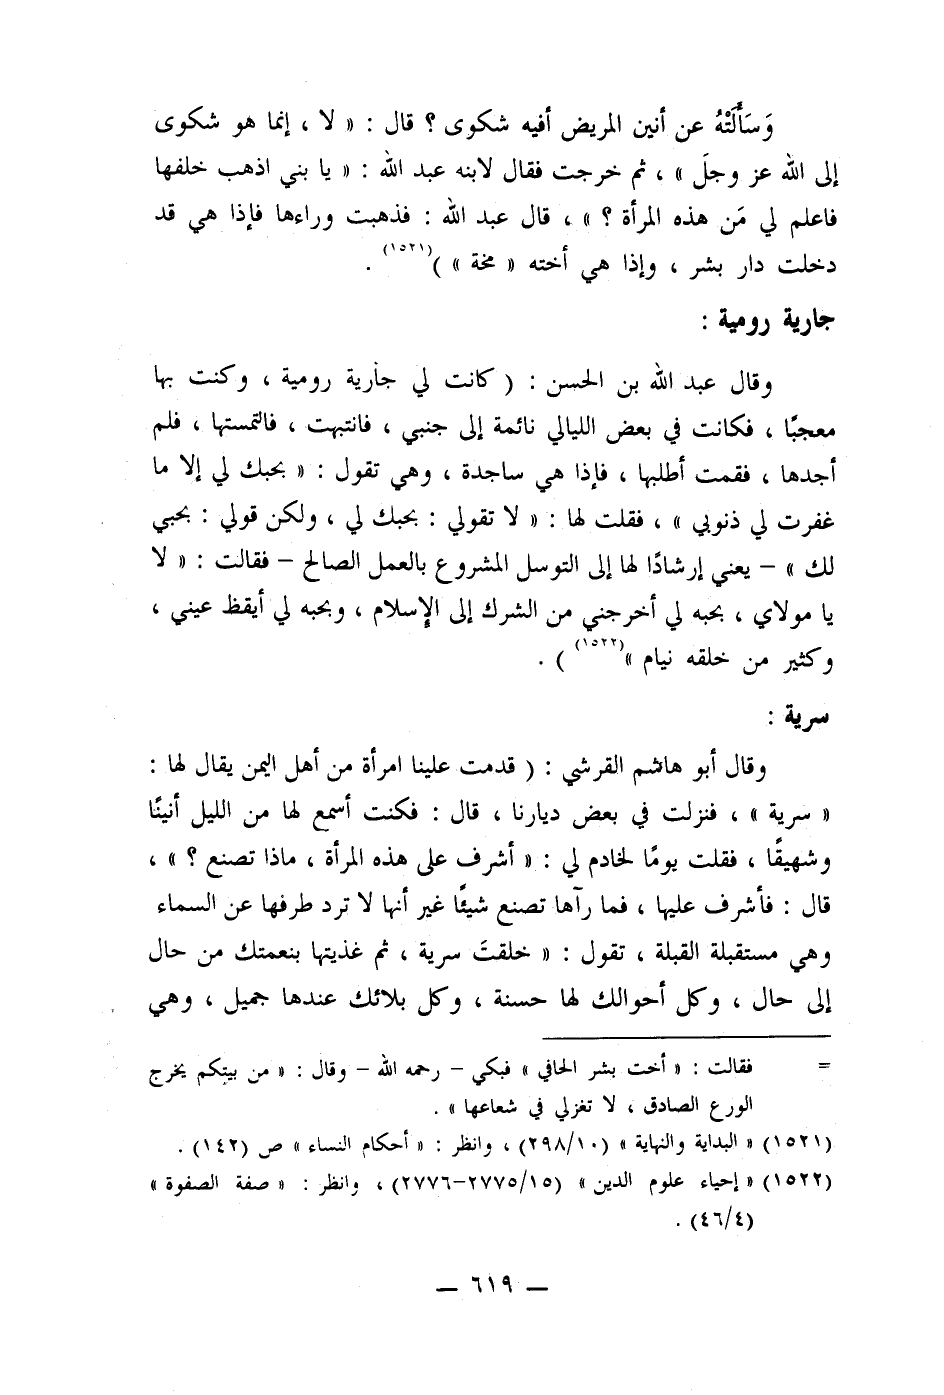 وَسَأَلَتْهُ عن أنين المريض أفيه شكوى ؟ قال : « لا ، إنما هو شكوى
إلى الله عز وجلَ » ، ثم خرجت فقال لابنه عبد الله : « يا بني اذهب خلفها
فاعلم لي مَن هذه المرأة ؟ » ، قال عبد الله : فذهبت وراءها فإذا هي قد
دخلت دار بشر ، وإذا هي أخته « مخة » )(١٥٢١) .
جارية رومية :
وقال عبد الله بن الحسن : ( كانت لي جارية رومية ، وكنت بها
معجبًا ، فكانت في بعض الليالي نائمة إلى جنبي ، فانتبهت ، فالتمستها ، فلم
أجدها ، فقمت أطلبها ، فإذا هي ساجدة ، وهي تقول : « بحبك لي إلا ما
غفرت لي ذنوبي » ، فقلت لها : « لا تقولي : بحبك لي ، ولكن قولي : بحبي
لك » – يعني إرشادًا لها إلى التوسل المشروع بالعمل الصالح – فقالت : « لا
يا مولاي ، بحبه لي أخرجني من الشرك إلى الإسلام ، وبحبه لي أيقظ عيني ،
وكثير من خلقه نيام »(١٥٢٢) ) .
سرية :
وقال أبو هاشم القرشي : ( قدمت علينا امرأة من أهل اليمن يقال لها :
« سرية » ، فنزلت في بعض ديارنا ، قال : فكنت أسمع لها من الليل أنينًا
وشهيقًا ، فقلت يومًا لخادم لي : « أشرف على هذه المرأة ، ماذا تصنع ؟ » ،
قال : فأشرف عليها ، فما رآها تصنع شيئًا غير أنها لا ترد طرفها عن السماء
وهي مستقبلة القبلة ، تقول : « خلقتَ سرية ، ثم غذيتها بنعمتك من حال
إلى حال ، وكل أحوالك لها حسنة ، وكل بلائك عندها جميل ، وهي
= فقالت : « أخت بشر الحافي » فبكي – رحمه الله – وقال : « من بيتكم يخرج
الورع الصادق ، لا تغزلي في شعاعها » .
(١٥٢١) « البداية والنهاية » (٢٩٨/١٠) ، وانظر : « أحكام النساء » ص (١٤٢) .
(١٥٢٢) « إحياء علوم الدين » (٢٧٧٥/١٥–٢٧٧٦) ، وانظر : « صفة الصفوة »
(٤٦/٤) .
– ٦١٩ –